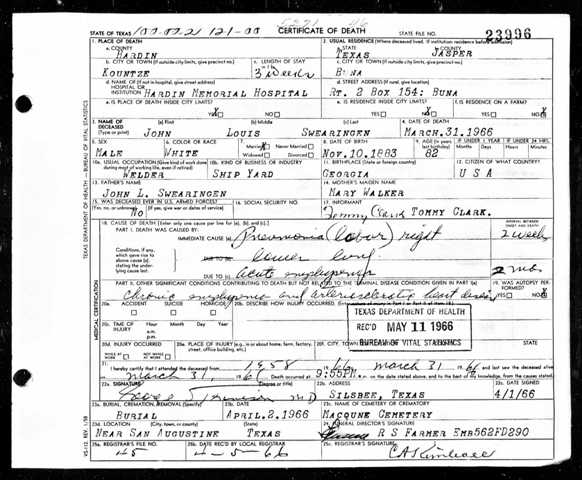 STATE OF TEXAS
CERTIFICATE OF DEATH
STATE FILE NO. 23996
1. PLACE OF DEATH
2. USUAL RESIDENCE (Where deceased lived, if institution: residence before admission)
a. COUNTY HARDIN
a. STATE TEXAS
b. COUNTY JASPER
b. CITY OR TOWN (If outside city limits, give precinct no.) KOUNTZE
c. LENGTH OF STAY 3 weeks
c. CITY OR TOWN (If outside city limits, give precinct no.) BUNA
d. NAME OF (If not in hospital, give street address) HOSPITAL OR INSTITUTION HARDIN MEMORIAL HOSPITAL
d. STREET ADDRESS (If rural, give location) RT. 2 BOX 154: BUNA
e. IS PLACE OF DEATH INSIDE CITY LIMITS?
e. IS RESIDENCE INSIDE CITY LIMITS?
f. IS RESIDENCE ON A FARM?
3. NAME OF DECEASED (Type or print)
(a) First JOHN
(b) Middle LOUIS
(c) Last SWEARINGEN
4. DATE OF DEATH MARCH.31.1966
5. SEX MALE
6. COLOR OR RACE WHITE
7. Married Never Married Widowed Divorced
8. DATE OF BIRTH NOV.10.1883
9. AGE 82
IF UNDER 1 YEAR Months Days
IF UNDER 24 HRS. Hours Min.
10a. USUAL OCCUPATION (Give kind of work done during most of working life, even if retired) WELDER
10b. KIND OF BUSINESS OR INDUSTRY SHIP YARD
11. BIRTHPLACE (State or foreign country) GEORGIA
12. CITIZEN OF WHAT COUNTRY? U S A
13. FATHER'S NAME JOHN L. SWEARINGEN
14. MOTHER'S MAIDEN NAME MARY WALKER
15. WAS DECEASED EVER IN U.S. ARMED FORCES? (Yes, no, or unknown) NO (If yes, give war or dates of service)
16. SOCIAL SECURITY NO.
17. INFORMANT Tommy Clark TOMMY CLARK.
18. CAUSE OF DEATH (Enter only one cause per line for (a), (b), and (c).)
INTERVAL BETWEEN ONSET AND DEATH
PART I. DEATH WAS CAUSED BY:
IMMEDIATE CAUSE (a) Pneumonia (lobar) right 2 weeks
Conditions, if any, which gave rise to above cause (a), stating the underlying cause last. lower lung
DUE TO (c) acute emphysema 2 mos
PART II. OTHER SIGNIFICANT CONDITIONS CONTRIBUTING TO DEATH BUT NOT RELATED TO THE TERMINAL DISEASE CONDITION GIVEN IN PART I(a)
19. WAS AUTOPSY PERFORMED?
chronic emphysema and arteriosclerotic heart disease
20a. ACCIDENT SUICIDE HOMICIDE
20b. DESCRIBE HOW INJURY OCCURRED.
20c. TIME OF INJURY Hour Month Day Year a.m. p.m.
TEXAS DEPARTMENT OF HEALTH
REC'D MAY 11 1966
BUREAU OF VITAL STATISTICS
20d. INJURY OCCURRED WHILE AT WORK NOT WHILE AT WORK
20e. PLACE OF INJURY (e.g. in or about home, farm, factory, street, office building, etc.)
20f. CITY, TOWN
21. I hereby certify that I attended the deceased from 1958 March 31, 66 and last saw the deceased alive on March 31, 66 Death occurred at 9:55PM. on the date stated above, and to the best of my knowledge, from the causes stated.
22a. SIGNATURE (Degree or title) M D
22b. ADDRESS SILSBEE, TEXAS
22c. DATE SIGNED 4/1/66
23a. BURIAL, CREMATION, REMOVAL (Specify) BURIAL
23b. DATE APRIL.2.1966
23c. NAME OF CEMETERY OR CREMATORY MACQUNE CEMETERY
23d. LOCATION (City, town, or county) (State) NEAR SAN AUGUSTINE TEXAS
24. FUNERAL DIRECTOR'S SIGNATURE R S FARMER EMB562FD290
25a. REGISTRAR'S FILE NO. 45
25b. DATE REC'D BY LOCAL REGISTRAR 4-5-66
25c. REGISTRAR'S SIGNATURE CA Kimball
TEXAS DEPARTMENT OF HEALTH—BUREAU OF VITAL STATISTICS
MEDICAL CERTIFICATION